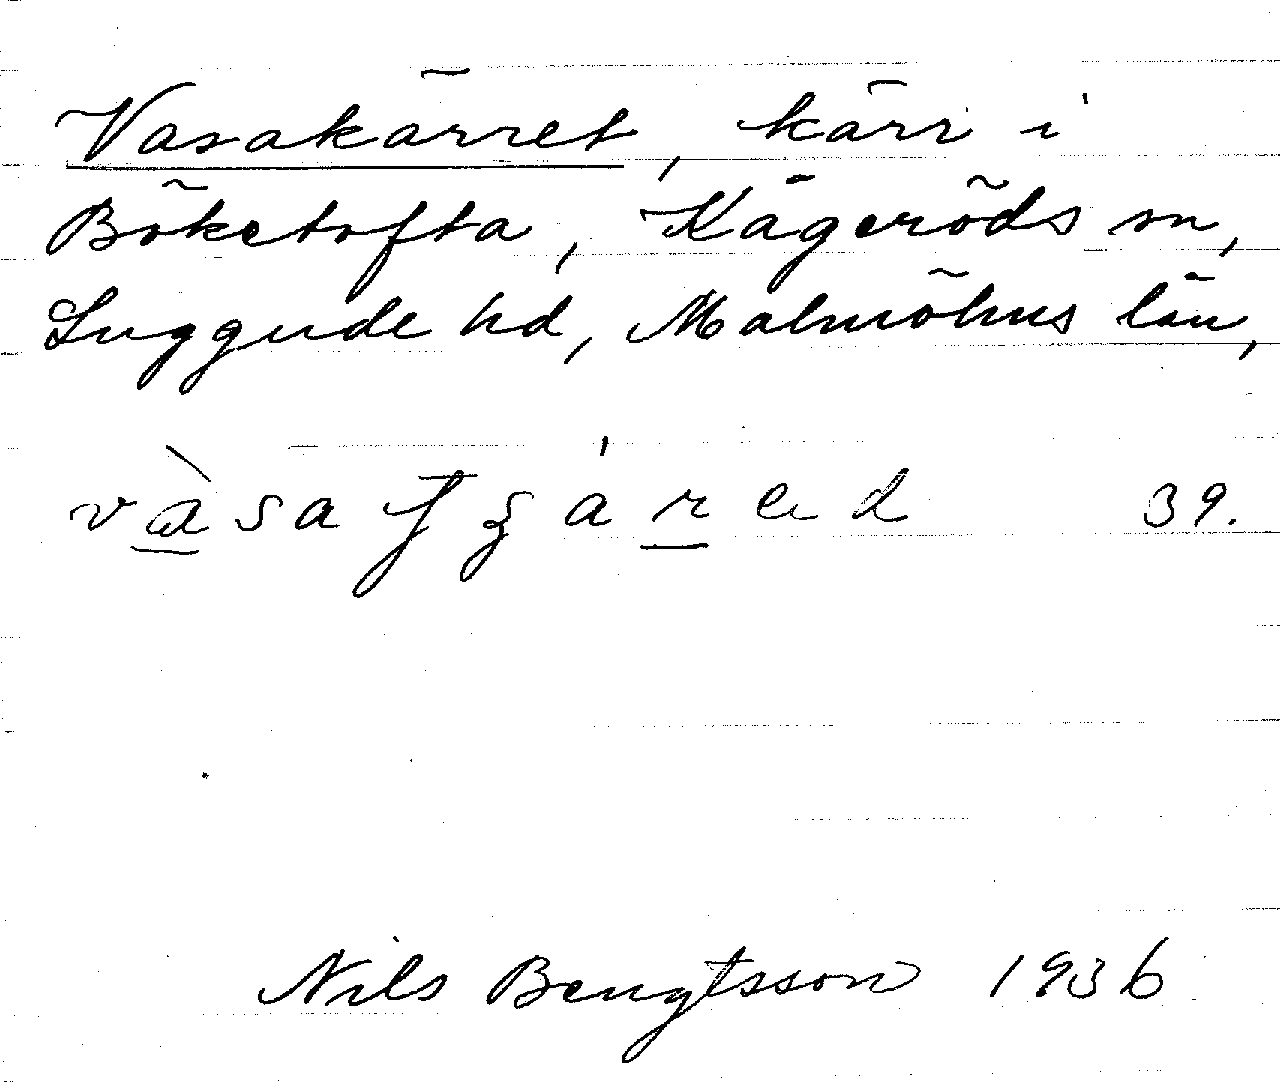 Vasakärret, kärr i
Böketofta, Kågeröds sn,
Luggude hd, Malmöhus län,
39.
Nils Bengtsson 1936